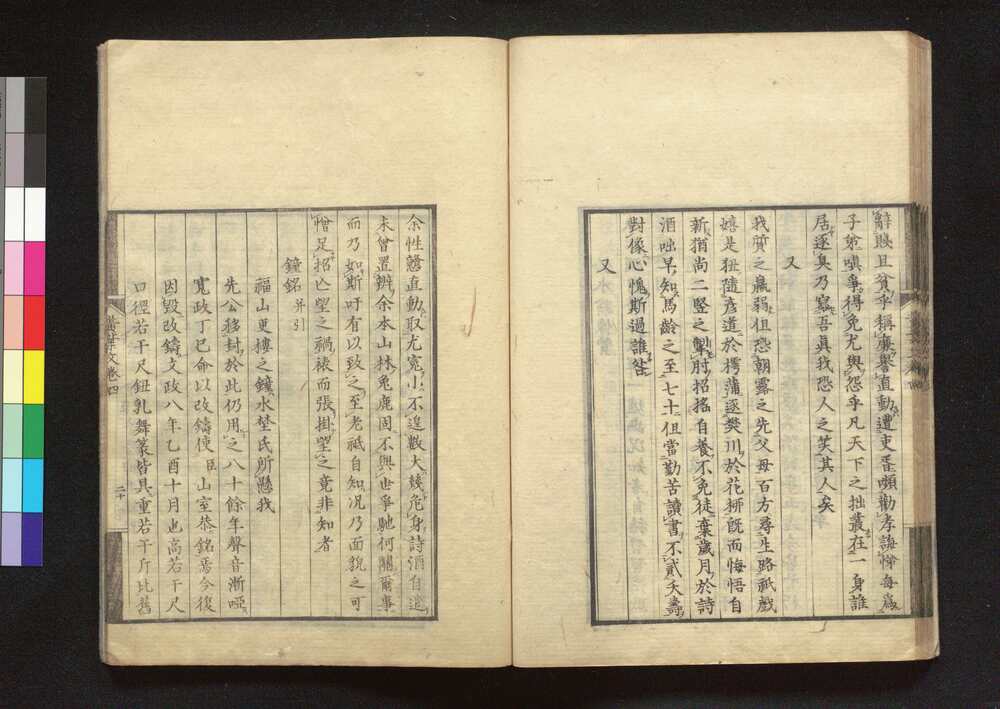 辭賧且貧乎稱廉譽直動遭吏胥嘲勸孝誨悌每爲
子弟嗔爭得免尤與怨乎凡天下之拙叢在一身誰
居逐臭乃寫吾眞我恐人之笑其人矣
又
我質之羸弱但恐朝露之先父母百方尋生路祇戲
嬉是狃隨彦道於樗蒲逐樊川於花柳既而悔悟自
新猶尚二竪之掣肘招搖自養不免徒棄歲月於詩
酒咄早知馬齡之至七十但當勤苦讀書不貳夭壽
對像心愧斯過誰咎
又
余性戇直動取尤寃小不遑數大幾危身詩酒自遣
未曾置辧余本山林兔鹿固不與世爭馳何關爾事
而乃如斯吁有以致之至老祇自知况乃面貌之可
憎足招亡望之禍裱而張掛望之竟非知者
鐘銘并引
福山更樓之鐘水埜氏所懸我
先公移封於此仍用之八十餘年聲音漸啞
寛政丁巳命以改鑄使臣山室恭銘焉今復
因毀改鑄文政八年乙酉十月也高若干尺
口徑若干尺鈕乳舞篆皆具重若干斤比舊
文卷四
二十